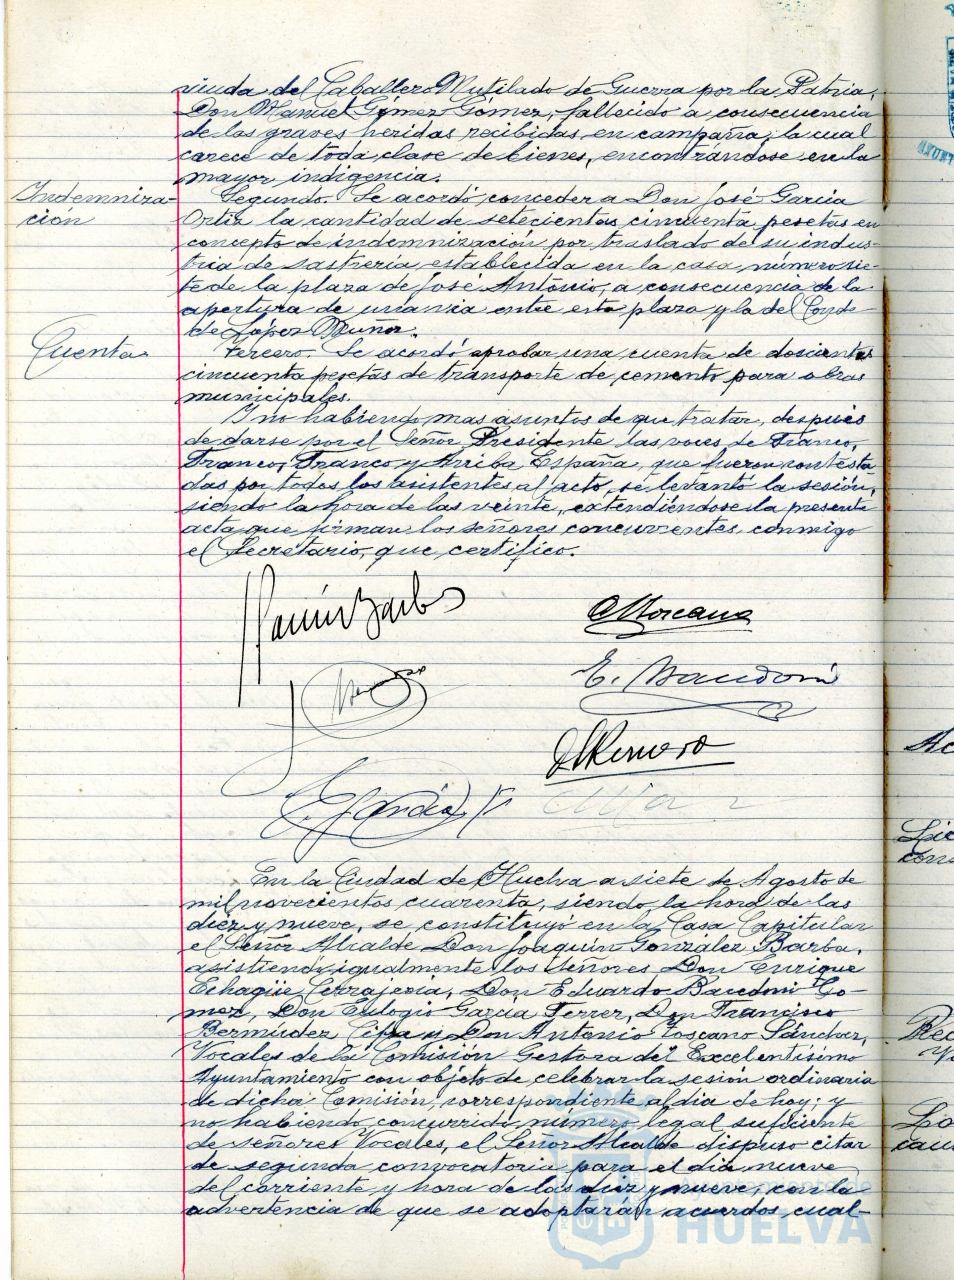 viuda del Caballero Mutilado de Guerra por la Patria,
Don Manuel Gómez Gómez, fallecido a consecuencia
de las graves heridas recibidas en campaña, la cual
carece de toda clase de bienes, encontrándose en la
mayor indigencia.
Indemniza-
ción
Segundo. Se acordó conceder a Don José García
Ortiz la cantidad de setecientas cincuenta pesetas en
concepto de indemnización por traslado de su indus-
tria de sastrería, establecida en la casa número sie-
te de la plaza de José Antonio, a consecuencia de la
apertura de una vía entre esta plaza y la del Conde
de López Muñoz.
Cuentas
Tercero. Se acordó aprobar una cuenta de doscientas
cincuenta pesetas de transporte de cemento para obras
municipales.
Y no habiendo mas asuntos de que tratar, después
de darse por el Señor Presidente las voces de Franco,
Franco, Franco y Arriba España, que fueron contesta
das por todos los asistentes al acto, se levantó la sesión,
siendo la hora de las veinte, extendiéndose la presente
acta que firman los señores concurrentes, conmigo
el Secretario, que certifico.
E. Bacedoni
Romero
E. García
En la Ciudad de Huelva a siete de Agosto de
mil novecientos cuarenta, siendo la hora de las
diez y nueve, se constituyó en la Casa Capitular
el Señor Alcalde Don Joaquín González Barba,
asistiendo igualmente los Señores Don Enrique
Echagüe Cerrajería, Don Eduardo Bacedoni Gó-
mez, Don Eulogio García Ferrer, Don Francisco
Bermúdez Cifra y Don Antonio Toscano Sánchez,
Vocales de la Comisión Gestora del Excelentísimo
Ayuntamiento con objeto de celebrar la sesión ordinaria
de dicha Comisión, correspondiente al día de hoy; y
no habiendo concurrido número legal suficiente
de señores Vocales, el Señor Alcalde dispuso citar
de segunda convocatoria para el día nueve
del corriente y hora de las diez y nueve, con la
advertencia de que se adoptarán acuerdos cual-
Ayuntamiento de
HUELVA